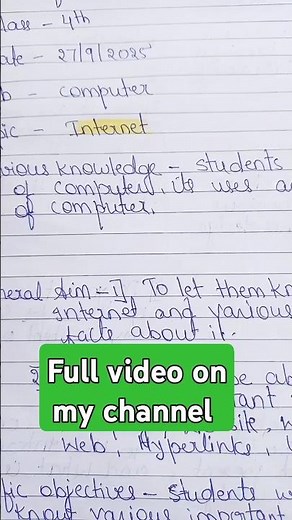 lass - 4th
ate - 27/9/2025
b - computer
pic - Internet
vious knowledge - students
of computer, its uses a
of computer.
neral Aim = 1] To let them kn
internet and various
facts about it.
Full video on
my channel
web, Hyperlinks,
fic objectives - students w
know various important